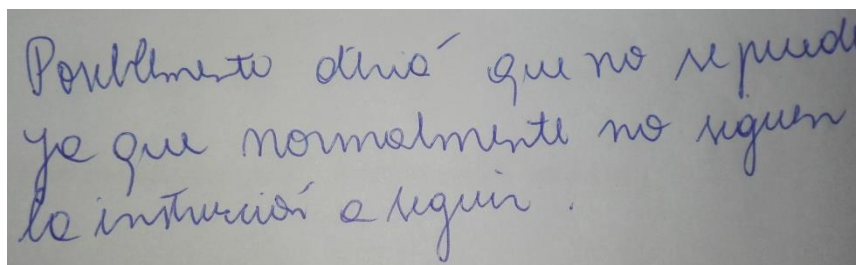 Posiblemente diría que no se puede
ya que normalmente no siguen
la instrucción a seguir.